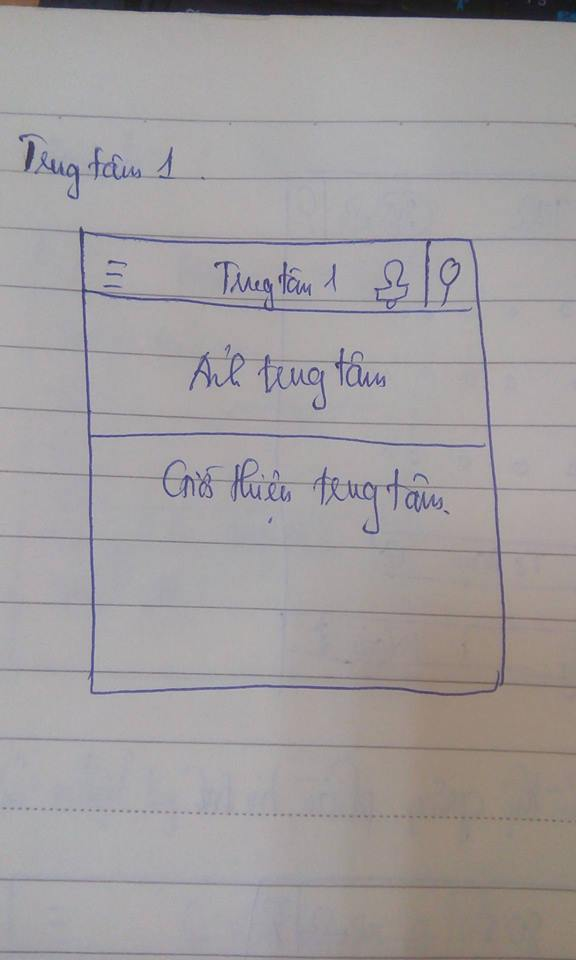 Trung tâm 1.
Trung tâm 1
Ảnh trung tâm
Giới thiệu trung tâm.